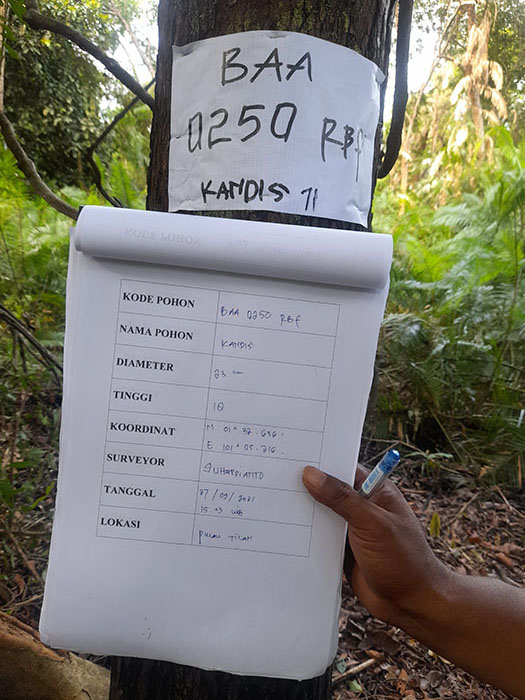 BAA
0250 RBf
KANDIS 71
KODE POHON BAA 0250 RBf
NAMA POHON KANDIS
DIAMETER 23 cm
TINGGI 10
KOORDINAT N 01° 32. 636.
E 101° 05. 216.
SURVEYOR SUHARDIANTO
TANGGAL 27/09/2021
15.07 WIB
LOKASI Pulau Tilan